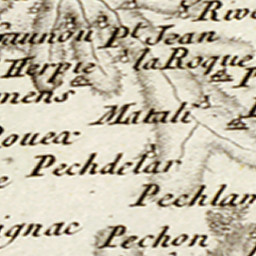 Rive
aunou
Pt Jean
Herpie
la Roque
mens
Matali
Rouex
Pechdelar
Pechlam
ignac
Pechon